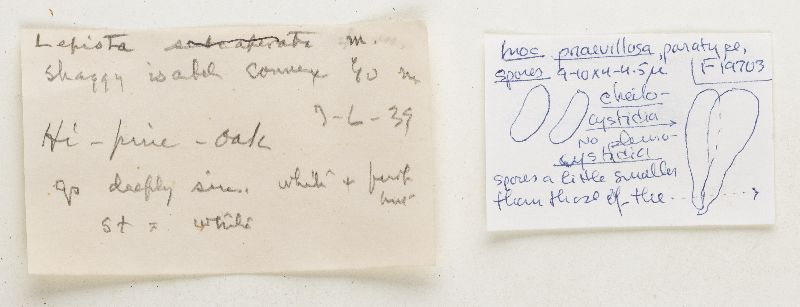 Lepista subaperata m.
shaggy isabel convex
7-6-39
Hi - pine - oak
go deeply sin.. white +
st = white
Inoc. praevillosa, paratype,
spores 9-10x4-4.5µ F19703
cheilo-
cystidia
no pleuro-
cystidia
spores a little smaller
than those of the